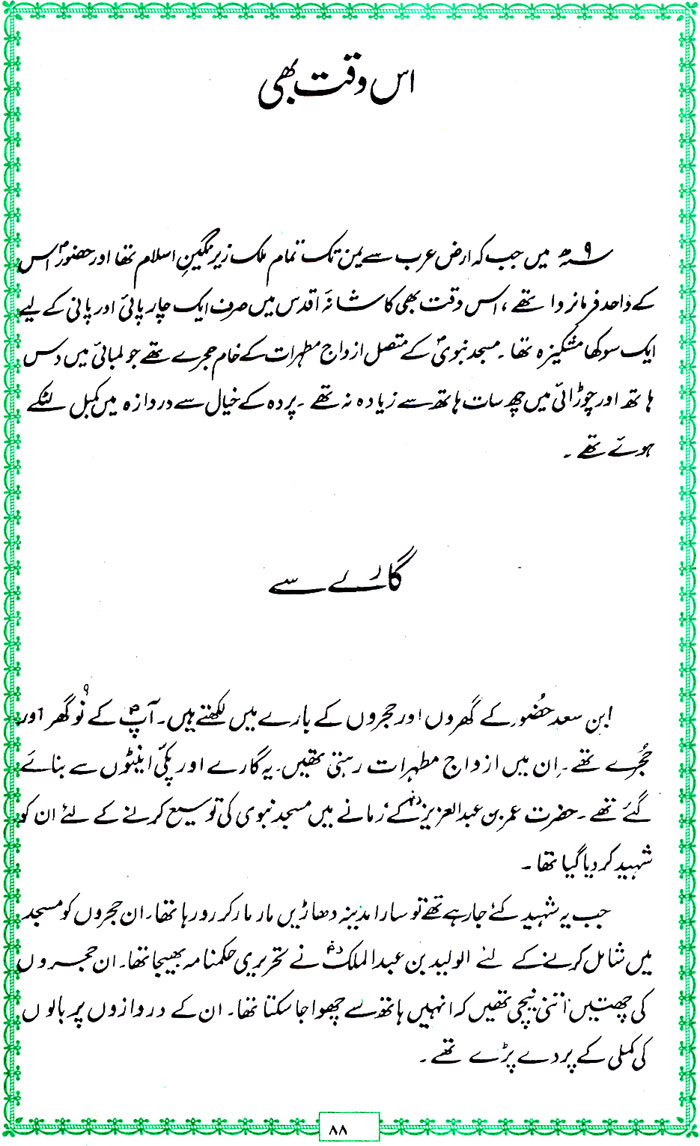 اس وقت بھی
۹ھ میں جب کہ ارض عرب سے یمن تک تمام ملک زیر نگین اسلام تھا اور حضورؐ اس
کے واحد فرمانروا تھے، اس وقت بھی کاشانۂ اقدس میں صرف ایک چارپائی اور پانی کے لیے
ایک سوکھا مشکیزہ تھا۔ مسجد نبویؐ کے متصل ازواج مطہرات کے خام حجرے تھے جو لمبائی میں دس
ہاتھ اور چوڑائی میں چھ سات ہاتھ سے زیادہ نہ تھے۔ پردہ کے خیال سے دروازہ میں کمبل لٹکے
ہوئے تھے۔
گارے سے
ابن سعد حضورؐ کے گھروں اور حجروں کے بارے میں لکھتے ہیں۔ آپؐ کے نو ۹ گھر اور
حُجرے تھے۔ ان میں ازواج مطہرات رہتی تھیں۔ یہ گارے اور پکّی اینٹوں سے بنائے
گئے تھے۔ حضرت عمر بن عبدالعزیزؒ کے زمانے میں مسجد نبوی کی توسیع کرنے کے لئے ان کو
شہید کر دیا گیا تھا۔
جب یہ شہید کئے جا رہے تھے تو سارا مدینہ دھاڑیں مار مار کر رو رہا تھا۔ ان حجروں کو مسجد
میں شامل کرنے کے لئے الولید بن عبد الملک نے تحریری حکمنامہ بھیجا تھا۔ ان حجروں
کی چھتیں اتنی نیچی تھیں کہ انہیں ہاتھ سے چھوا جا سکتا تھا۔ ان کے دروازوں پر بالوں
کی کملی کے پردے پڑے تھے۔
۸۸